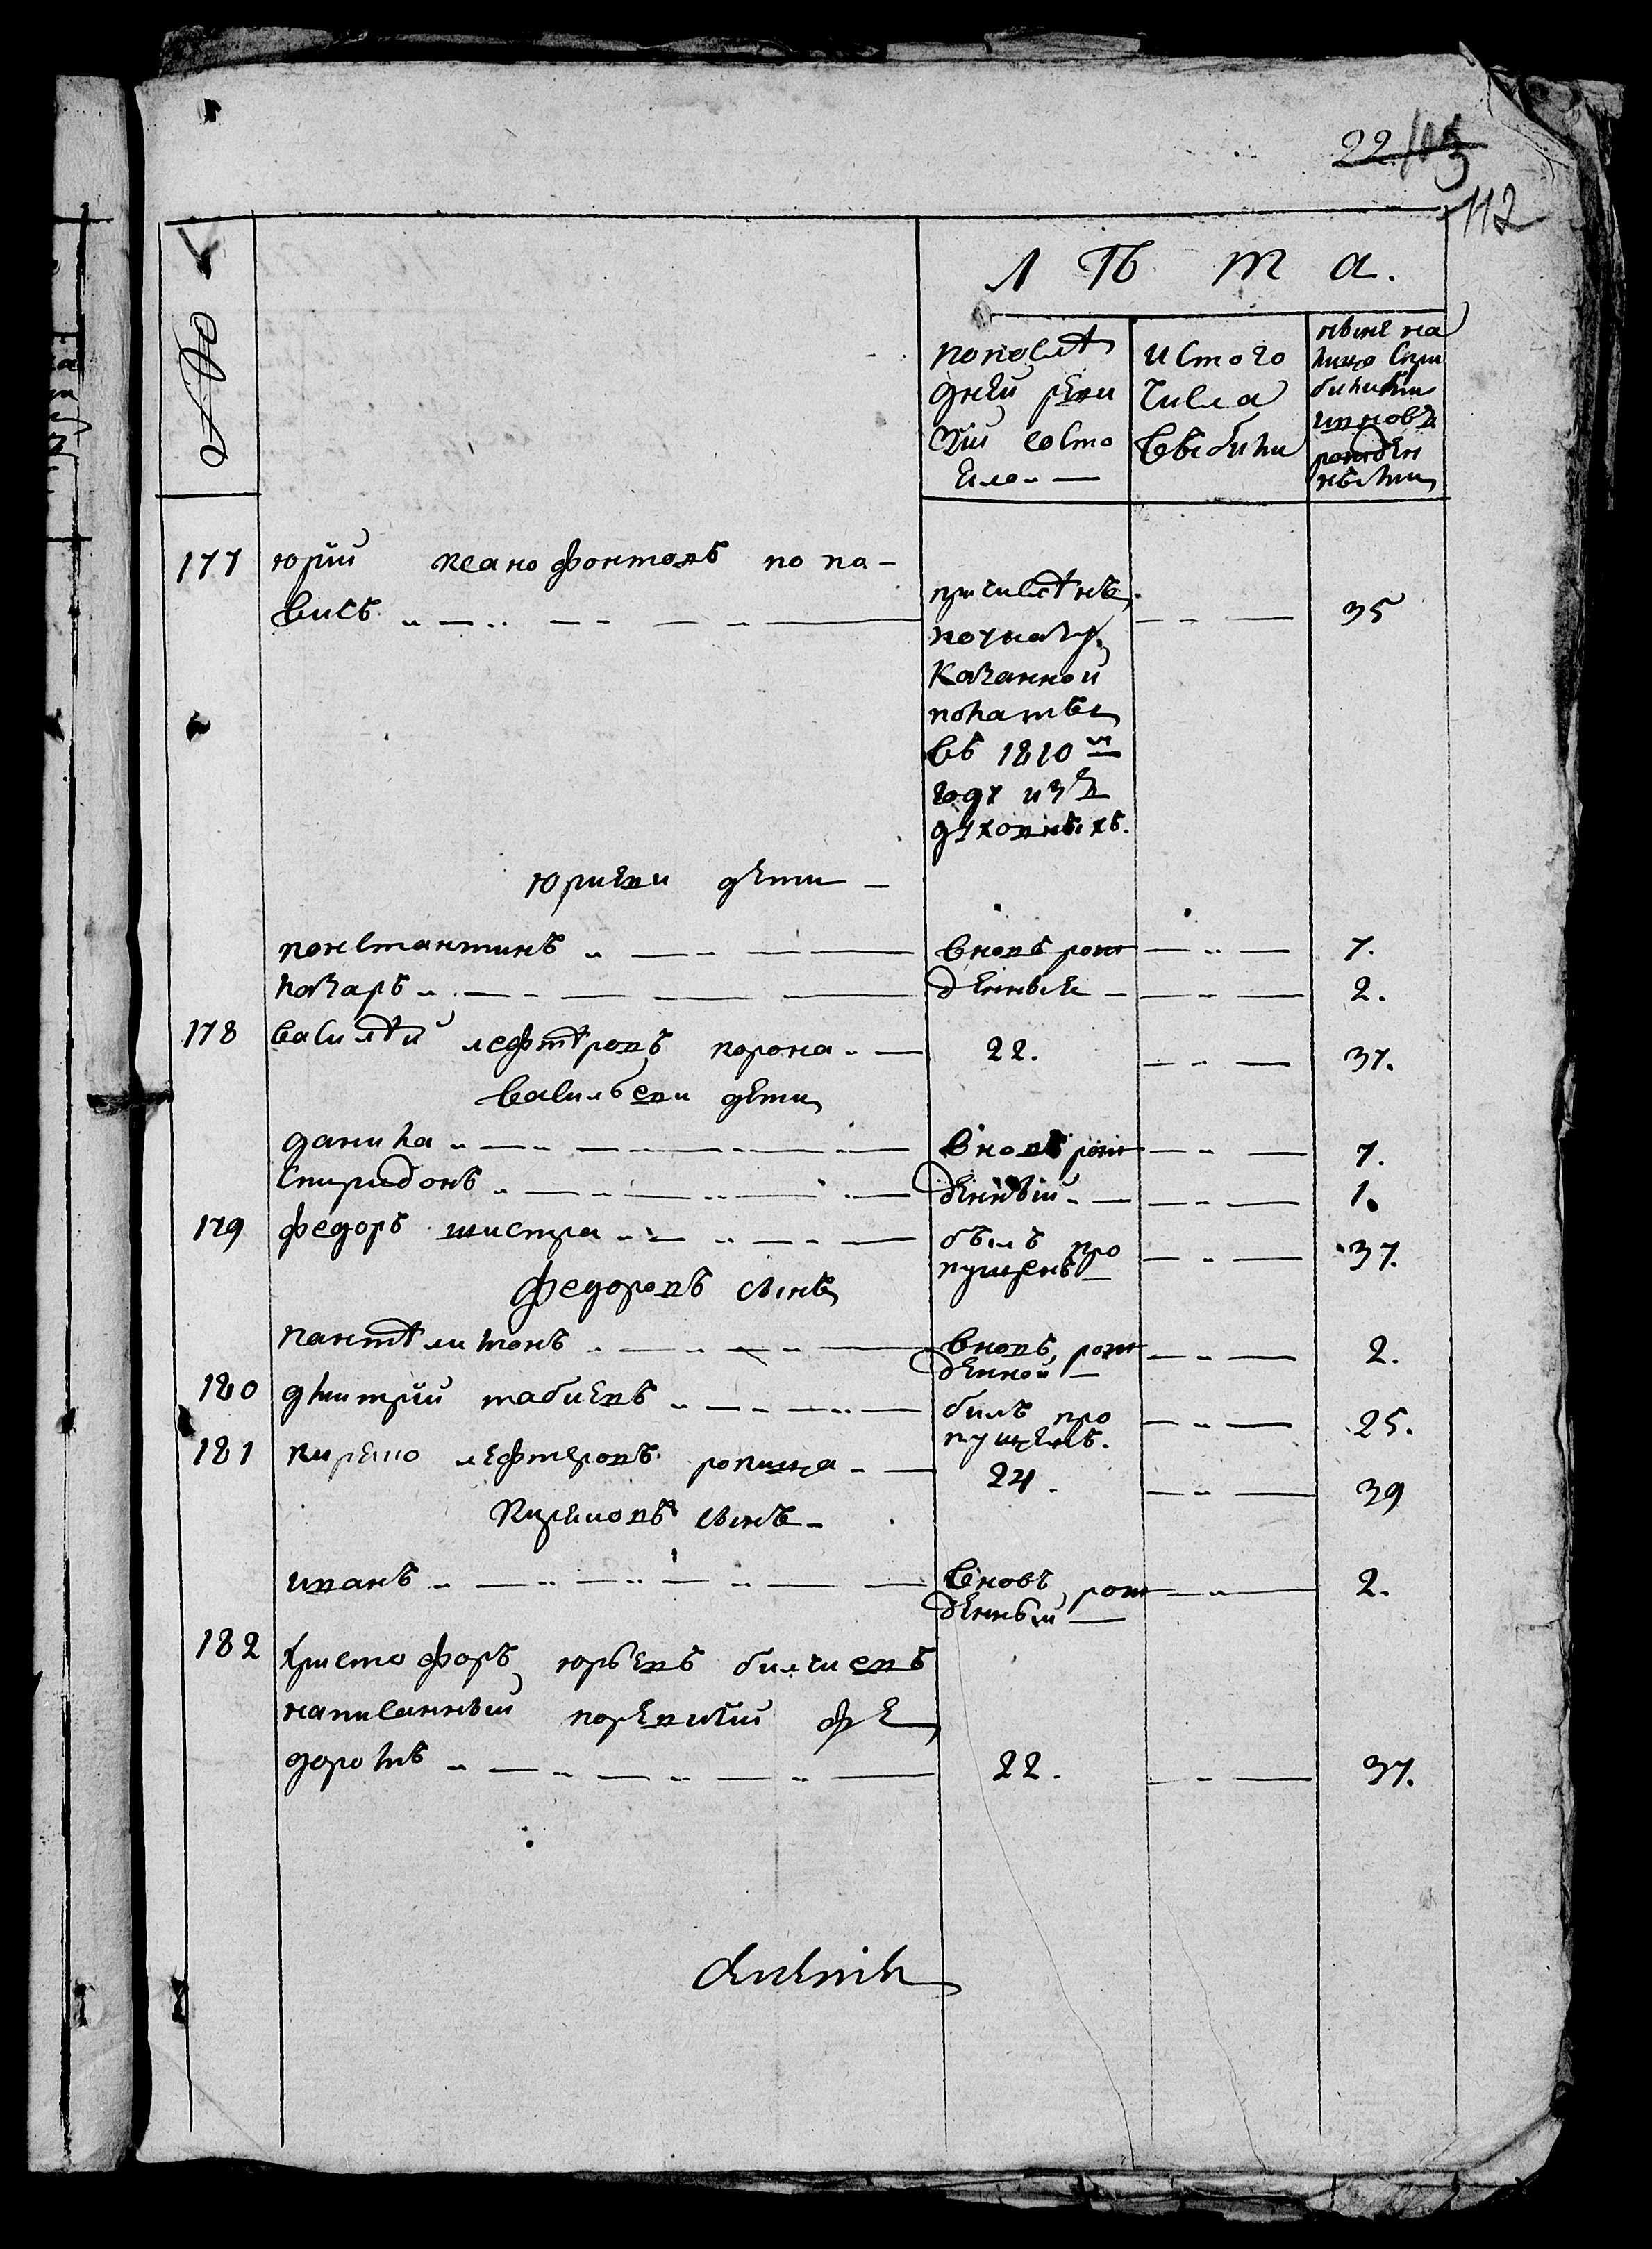 22 103
112
№
Лѣта.
попослѣ
дней реви
зіи состо
яло
истого
числа
выбыли
ныне на
лицо спри
былыми
ивновь
рожден
ными
177 юрий ксанофонтовъ попо-
вичь 35
причисленъ
поуказу
Казенной
полаты
въ 1810м
году изъ
духовныхъ.
юриеви дети
константинъ внов рож 7.
лазарь денные 2.
178 василей лефтеровъ корона 22. 37.
васильеви дети
данила вновь рож 7.
спиридонъ денный 1.
179 федоръ шистра былъ про 37.
пущенъ
федоровъ сынъ
пантелимонъ вновь рож 2.
денной
180 дмитрий табиевъ билъ про 25.
пущенъ.
181 кирено лефтеровъ 24. 39
киреновъ сынъ
иванъ вновь рож 2.
денный
182 христофоръ юрьевъ билчиевъ
написанный поревизии фе
доромъ 22. 37.